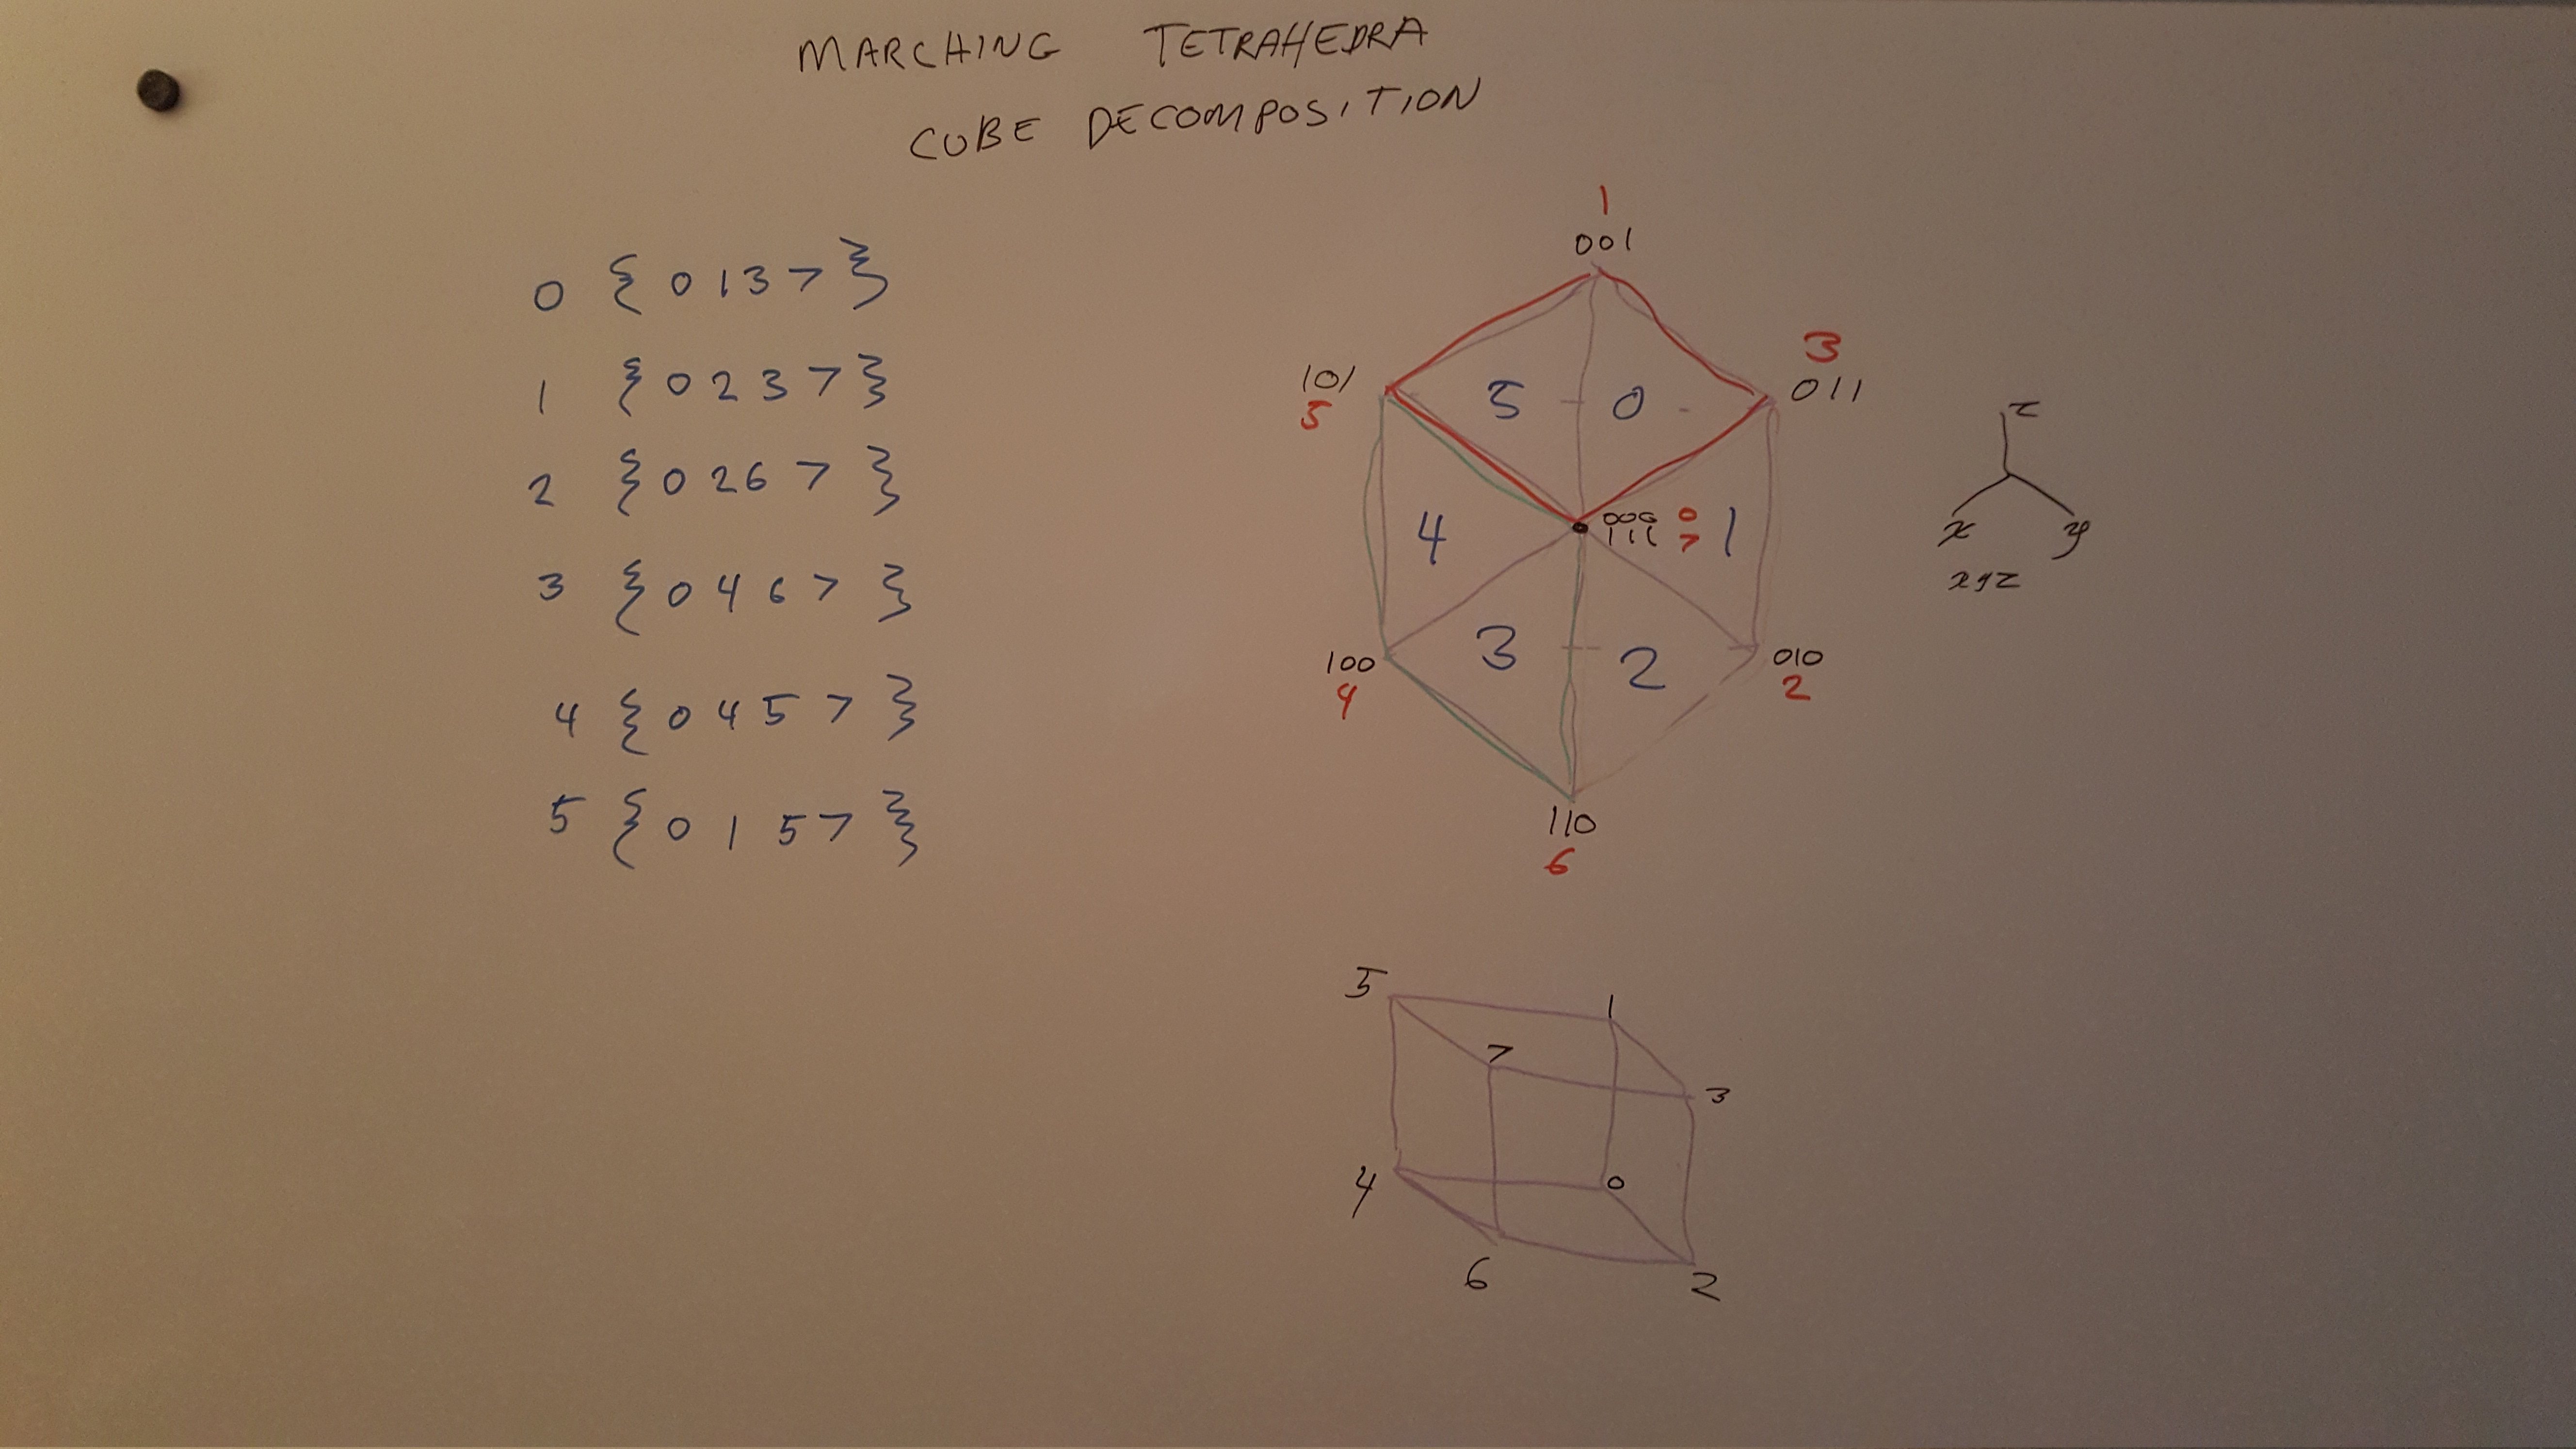 MARCHING TETRAHEDRA
CUBE DECOMPOSITION
0 { 0 1 3 7 }
1 { 0 2 3 7 }
2 { 0 2 6 7 }
3 { 0 4 6 7 }
4 { 0 4 5 7 }
5 { 0 1 5 7 }
1
001
3
011
101
5
5 0
4
000 0
111 7
1
3 2
100
4
010
2
110
6
z
x y
xyz
5 1
7
3
4 0
6 2